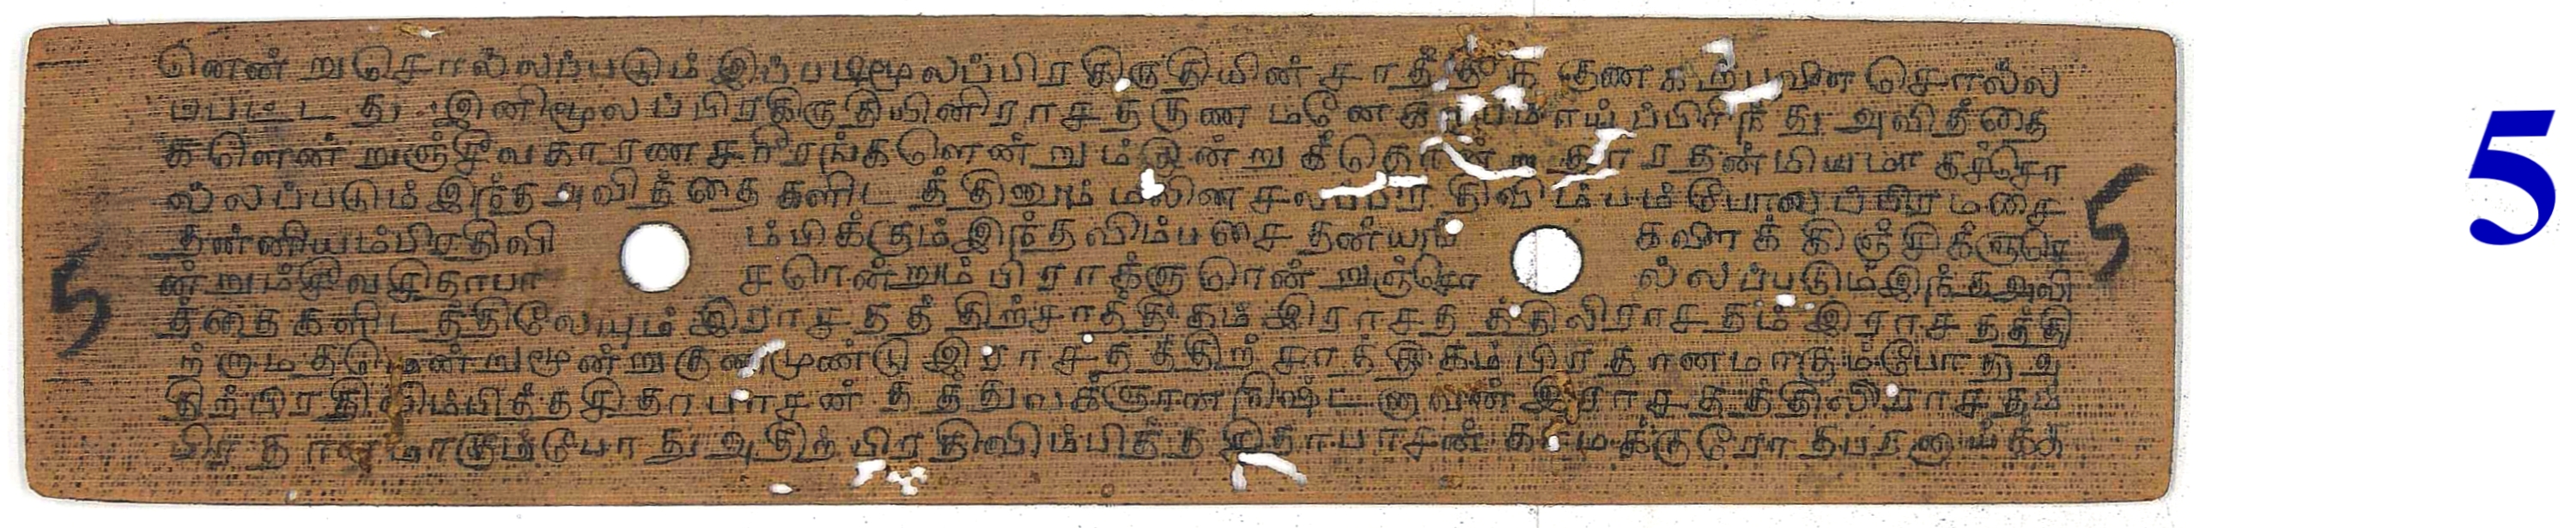 னென்றுசொல்லப்படும் இப்படிமூலப்பிரகிருதியின் சாத்திக குண கற்பனை சொல்ல
ப்பட்டது இனிமூலப்பிரகிருதியினிராசதகுண மனேக ரூபமாய்ப்பிரிந்து அவித்தை
களென்றுஞ்சீவகாரணசரீரங்களென்றும் இன்றுக்தொன்று தாரதன்மியமாகச்சொ
ல்லப்படும் இந்தஅவித்தைகளிடத்தினும் மலின சலப்பிரதிவிம்பம்போலப்பிரமசை
தன்னியம்பிரதிவி ம்பிக்கும் இந்தவிம்பசைதன்யங் களைக் கிஞ்சிக்ஞரெ
ன்றும்சீவசிதாபா சரென்றும்பிராக்ஞரென்றுஞ்சொ ல்லப்படும்இந்தஅவி
த்தைகளிடத்திலேயும் இராசதத்திற்சாத்திகம் இராசதத்திலிராசதம் இராசதத்தி
ற்றமதமென்றுமூன்றுகுணமுண்டு இராசதத்திற் சாத்திகம் பிரதானமாகும்போது அ
திற்பிரதிவிம்பித்தசிதாபாசன் தத்துவக்ஞானநிஷ்டனுவன் இராசதத்திலிராசதம்
பிரதானமாகும்போது அதிற் பிரதிவிம்பித்த சிதாபாசன் காமக்குரோதபரனுய்த்த
5
5
5